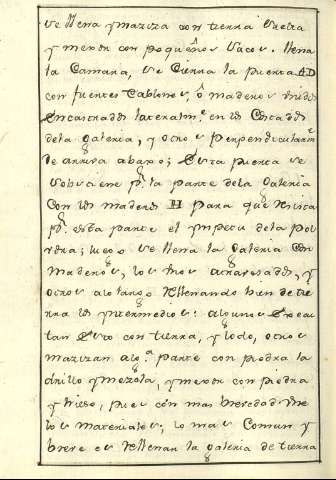 se llena y maziza con tierra suelta
y mejor con pequeños sacos. llena
la Camara, se Cierra la puerta AD
con fuertes tablones, ô maderos unidos
Encastrados lateralm.e en los Costados
dela galeria, y otros perpendicularm.e
de arriva abaxo; Esta puerta se
sobstiene p.r la parte dela Galeria
Con los maderos H para que resista
p.r esta parte el ympetu dela pol
vora; luego se llena la Galeria con
maderos, los unos atravesados, y
otros alo largo rellenando bien de tie
rra los yntermedios: algunos Execu
tan Esto con tierra, y lodo, otros
mazizan alg.a parte con piedra la
drillo y mezcla, y mejor con piedra
y hieso, pues con mas brevedad Une
los materiales; lo mas Comun y
breve es rellenar la galeria de tierra